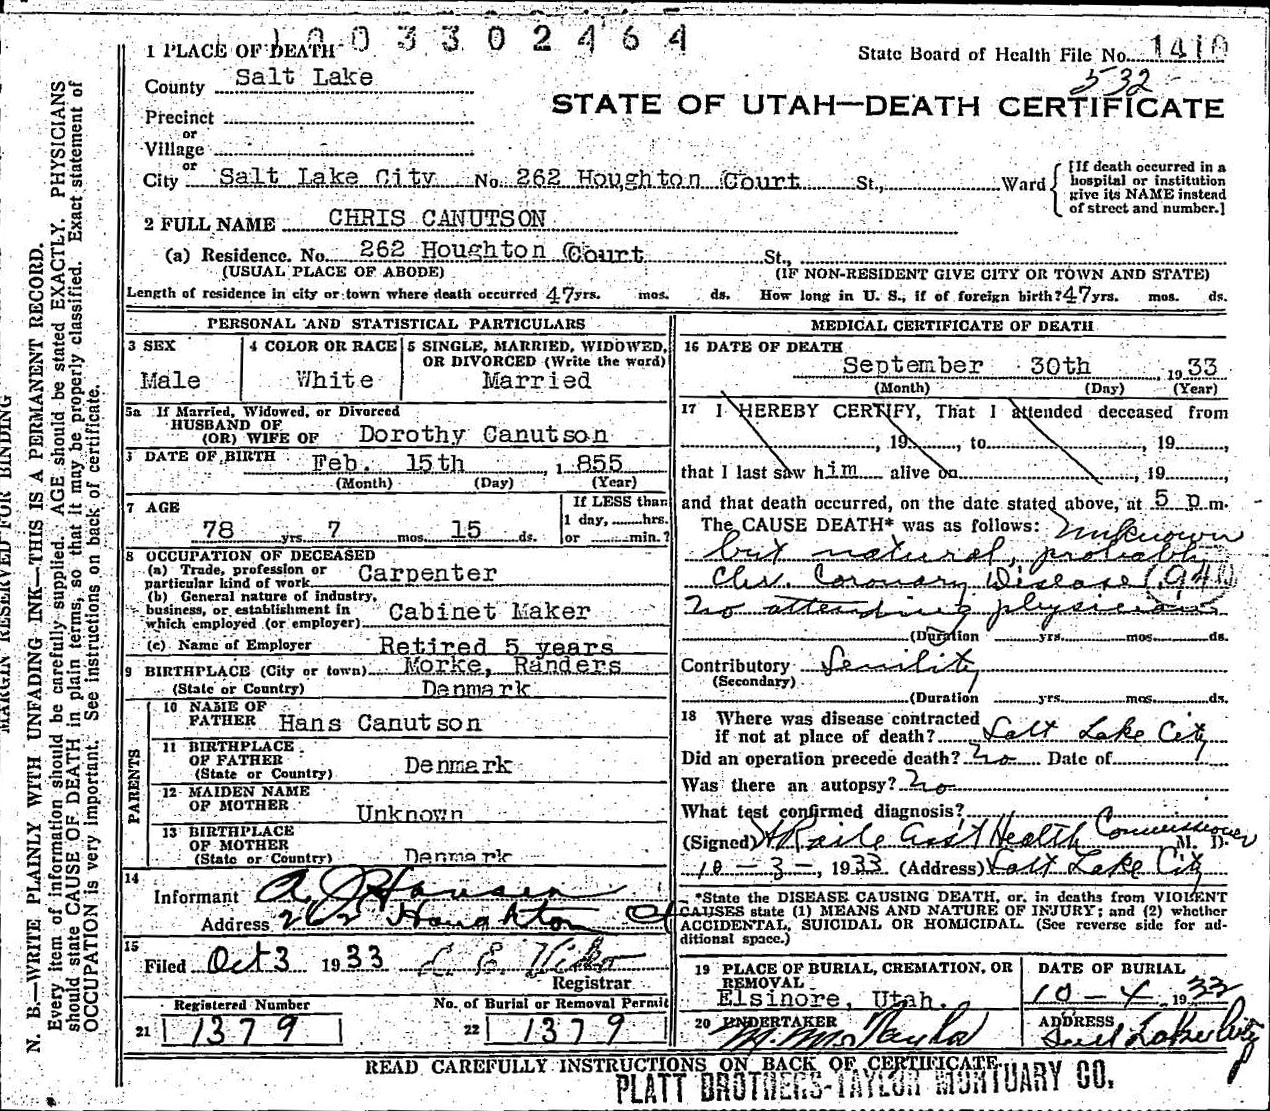 003302464
1 PLACE OF DEATH
State Board of Health File No. 1410
County Salt Lake
532
STATE OF UTAH—DEATH CERTIFICATE
Precinct
or
Village
or
City Salt Lake City No. 262 Houghton Court St., Ward
[If death occurred in a
hospital or institution
give its NAME instead
of street and number.]
2 FULL NAME CHRIS CANUTSON
(a) Residence. No. 262 Houghton Court St.,
(USUAL PLACE OF ABODE) (IF NON-RESIDENT GIVE CITY OR TOWN AND STATE)
Length of residence in city or town where death occurred 47 yrs. mos. ds. How long in U. S., if of foreign birth? 47 yrs. mos. ds.
PERSONAL AND STATISTICAL PARTICULARS
3 SEX
Male
4 COLOR OR RACE
White
5 SINGLE, MARRIED, WIDOWED,
OR DIVORCED (Write the word)
Married
5a If Married, Widowed, or Divorced
HUSBAND OF
(OR) WIFE OF Dorothy Canutson
DATE OF BIRTH
Feb. 15th, 1855
(Month) (Day) (Year)
7 AGE
78 yrs. 7 mos. 15 ds.
If LESS than
1 day, hrs.
or min.?
8 OCCUPATION OF DECEASED
(a) Trade, profession or
particular kind of work Carpenter
(b) General nature of industry,
business, or establishment in
which employed (or employer) Cabinet Maker
(c) Name of Employer Retired 5 years
9 BIRTHPLACE (City or town) Morke, Randers
(State or Country) Denmark
PARENTS
10 NAME OF
FATHER Hans Canutson
11 BIRTHPLACE
OF FATHER
(State or Country) Denmark
12 MAIDEN NAME
OF MOTHER
Unknown
13 BIRTHPLACE
OF MOTHER
(State or Country) Denmark
14
Informant A J Hansen
Address 262 Houghton Ct
15
Filed Oct 3 1933
Registrar
Registered Number
21 1379
No. of Burial or Removal Permit
22 1379
MEDICAL CERTIFICATE OF DEATH
16 DATE OF DEATH
September 30th, 1933
(Month) (Day) (Year)
17 I HEREBY CERTIFY, That I attended deceased from
, 19 , to , 19
that I last saw him alive on , 19
and that death occurred, on the date stated above, at 5 p m.
The CAUSE DEATH* was as follows: Unknown
but natural, probably
Chr. Coronary Disease (94)
No attending physician
(Duration yrs. mos. ds.
Contributory Senility
(Secondary)
(Duration yrs. mos. ds.
18 Where was disease contracted
if not at place of death? Salt Lake City
Did an operation precede death? no Date of
Was there an autopsy? no
What test confirmed diagnosis?
(Signed) Ass't Health Commissioner M. D.
10-3-, 1933 (Address) Salt Lake City
*State the DISEASE CAUSING DEATH, or, in deaths from VIOLENT
CAUSES state (1) MEANS AND NATURE OF INJURY; and (2) whether
ACCIDENTAL, SUICIDAL OR HOMICIDAL. (See reverse side for ad-
ditional space.)
19 PLACE OF BURIAL, CREMATION, OR
REMOVAL
Elsinore, Utah.
DATE OF BURIAL
10-4, 1933
20 UNDERTAKER
ADDRESS
Salt Lake City
READ CAREFULLY INSTRUCTIONS ON BACK OF CERTIFICATE
PLATT BROTHERS-TAYLOR MORTUARY CO.
MARGIN RESERVED FOR BINDING
N. B.—WRITE PLAINLY WITH UNFADING INK—THIS IS A PERMANENT RECORD.
Every item of information should be carefully supplied. AGE should be stated EXACTLY. PHYSICIANS
should state CAUSE OF DEATH in plain terms, so that it may be properly classified. Exact statement of
OCCUPATION is very important. See instructions on back of certificate.